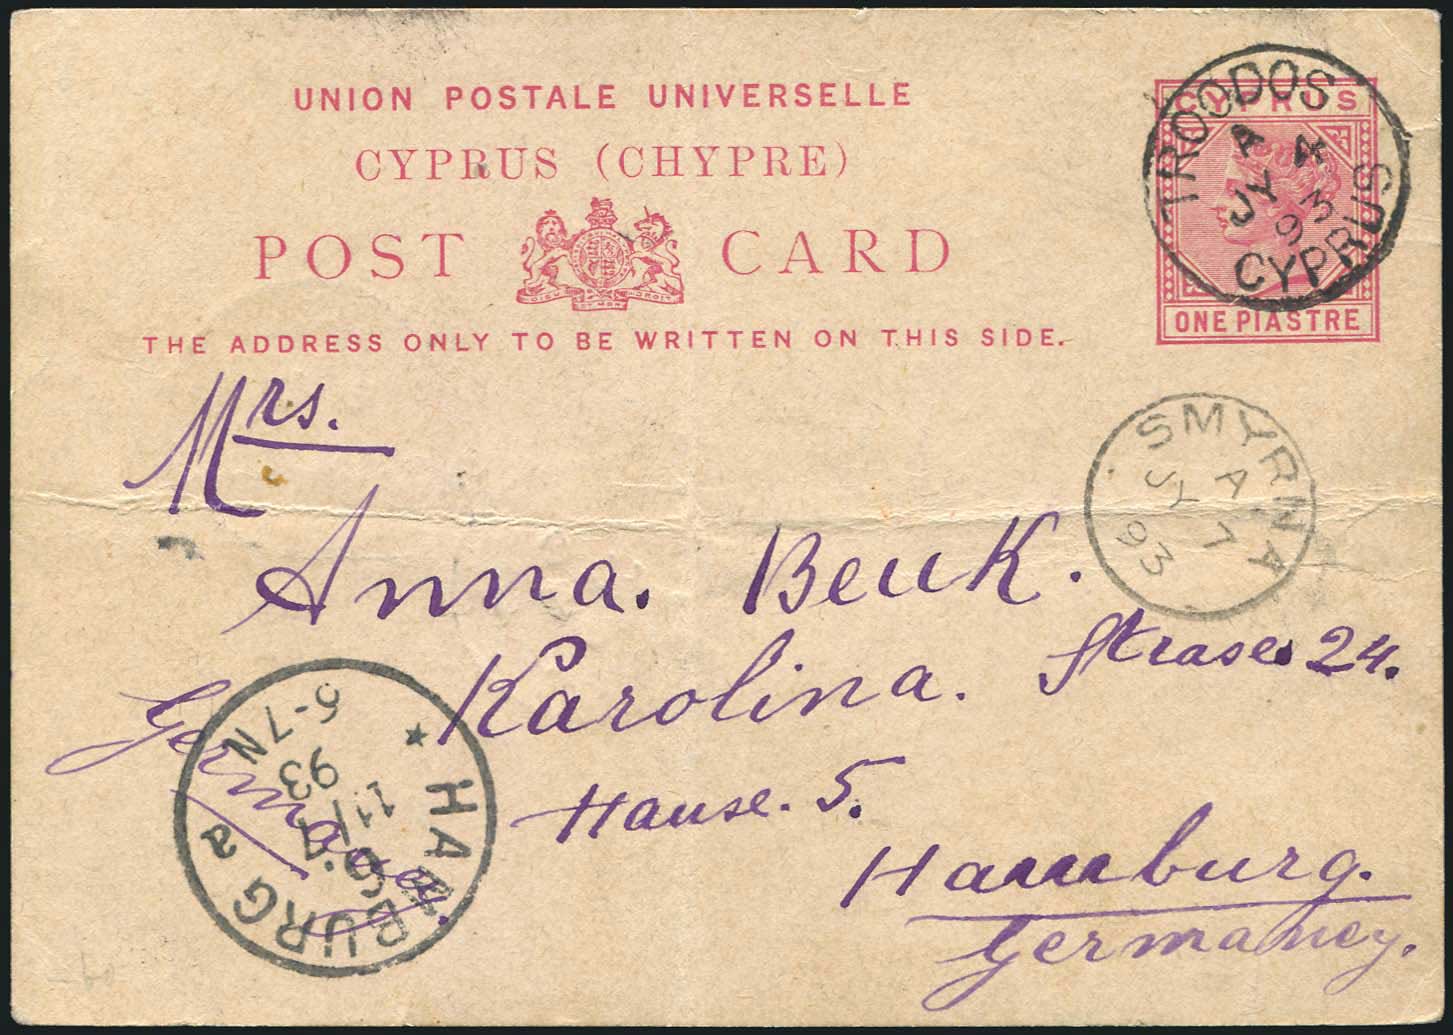 UNION POSTALE UNIVERSELLE
CYPRUS (CHYPRE)
POST CARD
THE ADDRESS ONLY TO BE WRITTEN ON THIS SIDE.
CYPRUS
ONE PIASTRE
TROODOS
A
JY 4
93
CYPRUS
SMYRNA
A
JY 7
93
Mrs.
Anna. Beuk.
Karolina. Strase. 24.
Hause. 5.
Hamburg.
Germaney.
Germaney.
★ HAMBURG a
11/7
93
6-7N